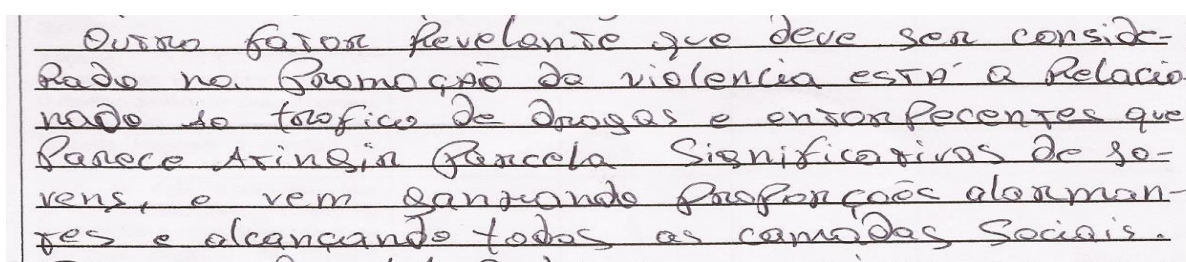 Outro fator Revelante que deve ser conside-
Rado na Promoção da violencia está a Relacio
nado ao trafico de drogas e entorpecentes que
Parece Atingir Parcela Significativas de jo-
vens, e vem ganhando proporções alarman-
tes e alcançando todas as camadas Sociais.